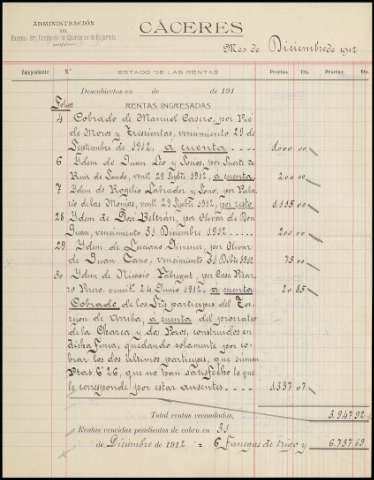 ADMINISTRACIÓN
DEL
CÁCERES
Mes de Diciembre de 1912
Inquilinato Nº ESTADO DE LAS RENTAS Pesetas Cts. Pesetas Cts.
Descubiertos en de de 191
Folios RENTAS INGRESADAS
4 Cobrado de Manuel Casero, por Pie
de Moros y Treviantas, vencimiento 29 de
Septiembre de 1912, a cuenta 1.000 00
6 Idem de Juan Leo y Socios, por Puerto de
vnt.º 29 Sepbre 1912, a cuenta 200 00
7 Idem de Rogelio Labrador y Socio, por Pala-
cio de las Monjas, vent.º 29 Sepbre 1912, por resto 1.115 00
28 Idem de José Beltrán, por Olivar de Don
Juan, vencimiento 31 Diciembre 1912 200 00
29 Idem de Luciano Jimenez, por Olivar
de Juan Cano, vencimiento 31 Dcbre 1912 75 00
30 Idem de por Casa Pizar-
ro vent.º 24 Junio 1912, a cuenta 20 85
Cobrado de los partícipes del To-
rrejón de Arriba, a cuenta del prorrateo
de la Charca y dos Pozos, construidos en
dicha Finca, quedando solamente por co-
brar los dos últimos partícipes, que suman
Ptas 6'26, que no han satisfecho lo que
le corresponde por estar ausentes 1.337 07
Total rentas recaudadas, 3.947 92
Rentas vencidas pendientes de cobro en 31
de Diciembre de 1912 = 6 Fanegas de trigo y 6.737 69